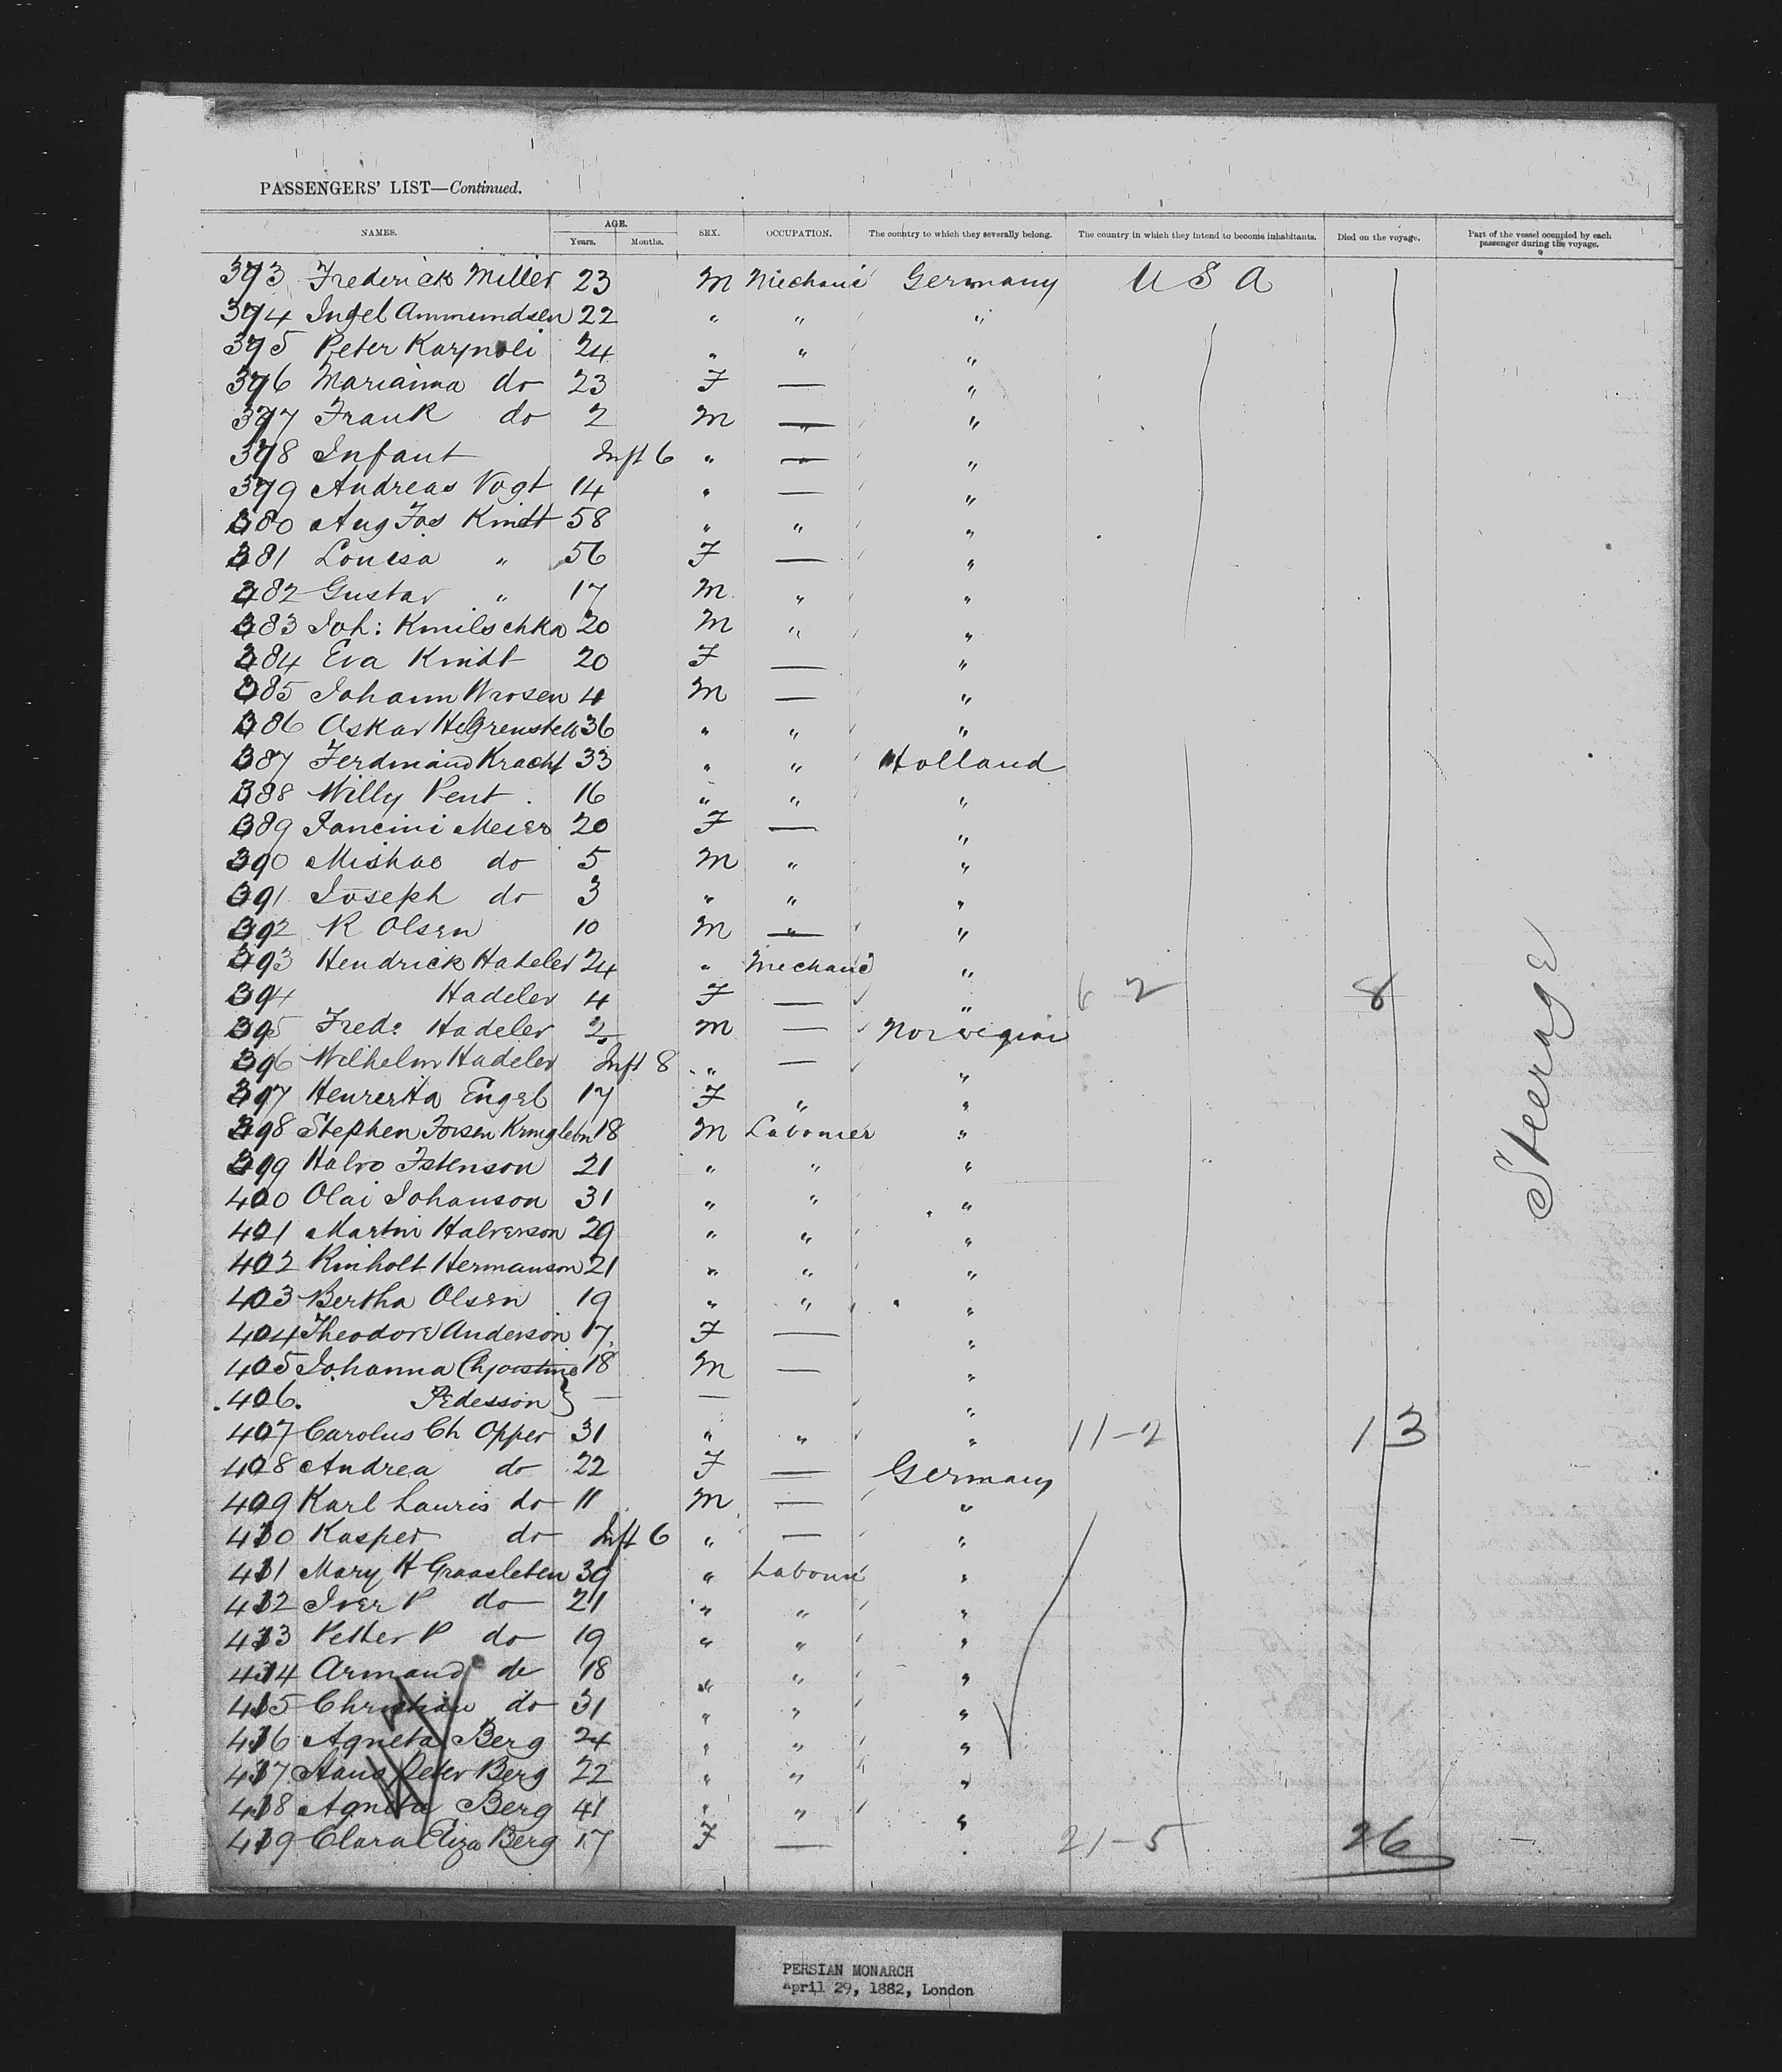 PASSENGERS' LIST—Continued.
NAMES. AGE. Years. Months. SEX. OCCUPATION. The country to which they severally belong. The country in which they intend to become inhabitants. Died on the voyage. Part of the vessel occupied by each passenger during the voyage.
373 Frederick Miller 23 M Mechanic Germany U S A
374 Ingel Ammundsen 22 " " "
375 Peter Karpnoli 24 " " "
376 Marianna do 23 F — "
377 Frank do 2 M — "
378 Infant Inft 6 " — "
379 Andreas Vogt 14 " — "
380 Aug Jos Kindt 58 " " "
381 Louisa " 56 F — "
382 Gustav " 17 M " "
383 Joh: Kmilschka 20 M " "
384 Eva Kindt 20 F — "
385 Johann Wrosen 4 M — "
386 Oskar HeGrenstell 36 " " "
387 Ferdinand Kracht 33 " " Holland
388 Willy Pent . 16 " " "
389 Jancini Meier 20 F — "
390 Mishae do 5 M " "
391 Joseph do 3 " " "
392 R Olsen 10 M — "
393 Hendrick Hadeler 24 " Mechanic "
394 Hadeler 4 F — " 6-2 8
395 Fred: Hadeler 2 M — Norwegian
396 Wilhelm Hadeler Inft 8 " — "
397 Henrietta Engel 17 F " "
398 Stephen Jorsen Kringlebn 18 M Labourer "
399 Halvo Istenson 21 " " "
400 Olai Johanson 31 " " "
401 Martin Halverson 29 " " "
402 Rinholt Hermanson 21 " " "
403 Bertha Olsen 19 " " "
404 Theodore Anderson 17 F — "
405 Johanna Chjorstine 18 M — "
406. Pedesson } — — "
407 Carolus Ch Opper 31 " " " 11-2 13
408 Andrea do 22 F — Germany
409 Karl Lauris do 11 M — "
410 Kasper do Inft 6 " — "
411 Mary H Graasleben 39 " Labour "
412 Iver P do 21 " " "
413 Petter P do 19 " " "
414 Armand do 18 " " "
415 Christian do 31 " " "
416 Agneta Berg 24 " " "
417 Hans Peter Berg 22 " " "
418 Agneta Berg 41 " " "
419 Clara Eliza Berg 17 F — " 21-5 26
Steerage
PERSIAN MONARCH
April 29, 1882, London